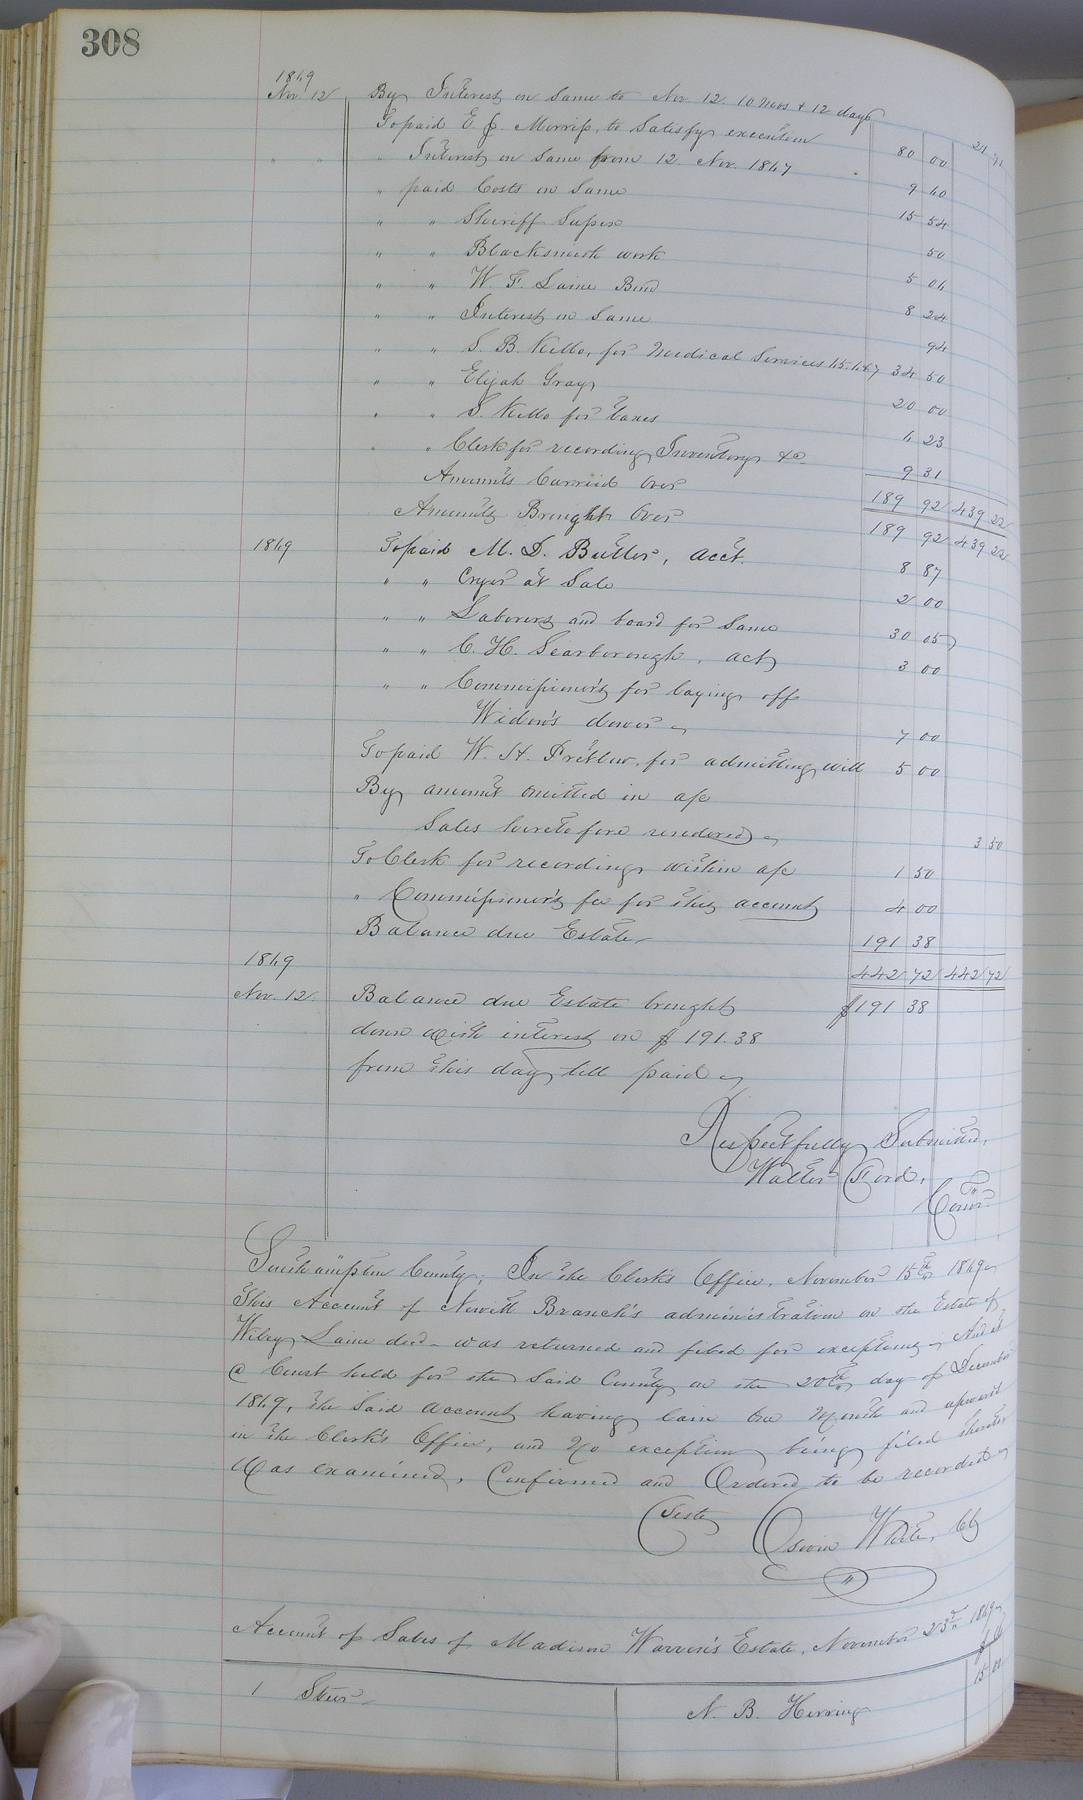 308
1849
Nov. 12 By Interest on Same to Nov. 12. 10 mos & 12 days 21 71
To paid E. J. Morriss, to Satisfy execution 80 00
" " " Interest on Same from 12 Nov. 1847 9 60
" paid Costs on Same 15 54
" " Sheriff Super 50
" " Blacksmith work 5 06
" " W. F. Laine Bond 8 24
" " Interest on Same 94
" " S. B. Kello, for Medical Services 34 50
" " Elijah Gray 20 00
" " S. Kello for taxes 6 23
" " Clerk for recording Inventory &c. 9 31
Amounts Carried Over 189 92 439 22
Amounts Brought Over 189 92 439 22
1849 To paid M. D. Butler, acct. 8 87
" " Cryer at Sale 2 00
" " Laborers and board for Same 30 05
" " C. H. Scarborough, act 3 00
" " Commissioners for laying off
Widow's dower 7 00
To paid W. H. Pretlow, for admitting will 5 00
By amount omitted in a/c
Sales heretofore rendered 3 50
To Clerk for recording within a/c 1 50
" Commissioner's fee for this account 4 00
Balance due Estate 191 38
1849 442 72 442 72
Nov. 12. Balance due Estate brought $191 38
down with interest on $191.38
from this day till paid
Respectfully Submitted,
Walter Ford,
Comr.
Southampton County; In the Clerk's Office, November 15th 1849
This Account of Newitt Branch's administration on the Estate of
Wiley Laine decd- was returned and filed for exceptions, And at
a Court held for the Said County on the 20th day of December
1849, the Said account having lain One Month and upward
in the Clerk's Office, and No exception being filed thereto
Was examined, Confirmed and Ordered to be recorded
Teste
Oswin White, Clk
Account of Sales of Madison Warren's Estate, November 23rd 1849
1 Steer N. B. Herring 15 00